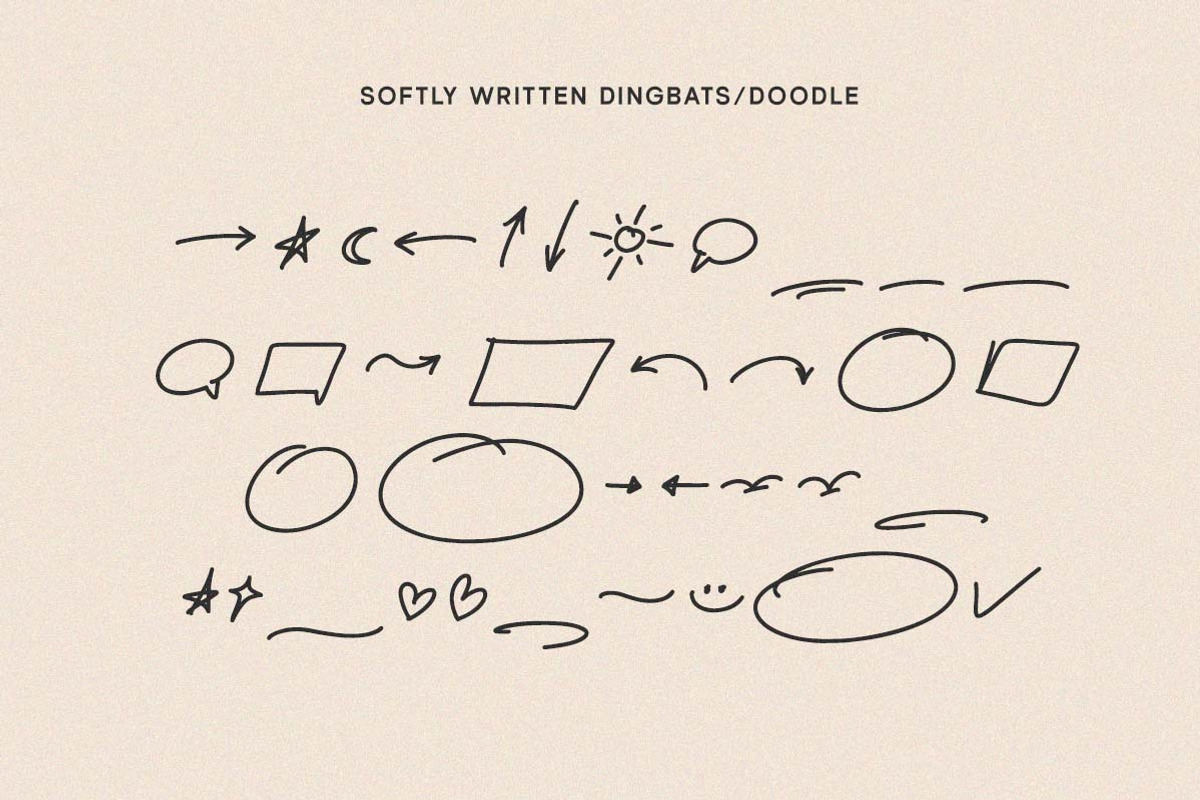 SOFTLY WRITTEN DINGBATS/DOODLE